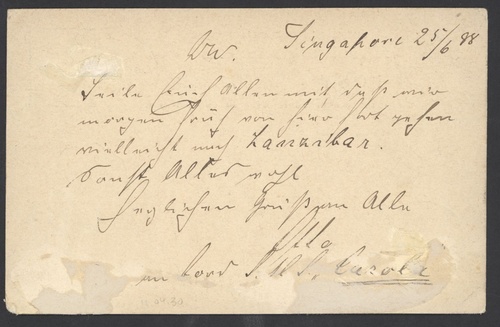 Singapore 25/6 88
W.
Teile Euch Allen mit daß wir
morgen früh von hier fort gehen
vielleicht nach Zanzibar.
Sonst Alles wohl
Herzlichen Gruß an Alle
Otto
an Bord S.M.S. Carola